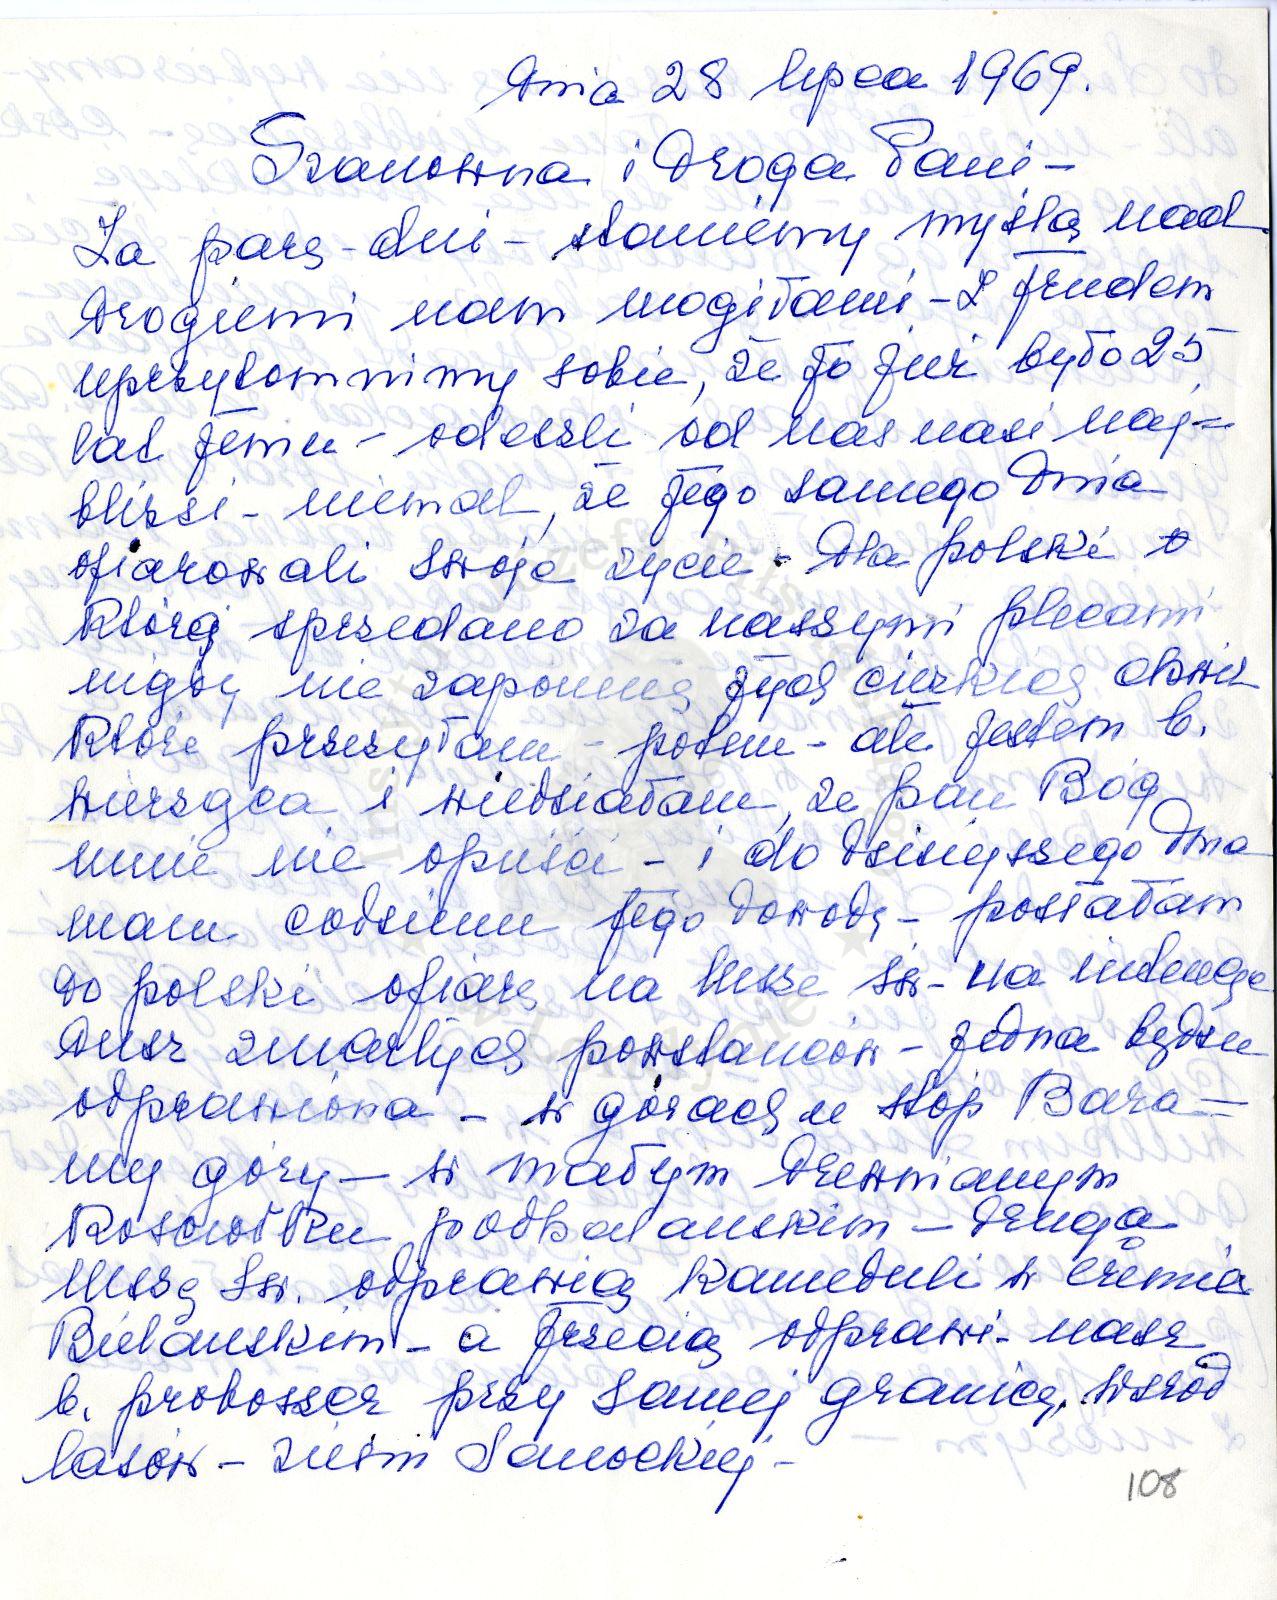 Dnia 28 lipca 1969.
Szanowna i Droga Pani –
Za parę – dni – staniemy myślą nad
Drogiemi nam mogiłami – Z trudem
uprzytomnimy sobie, że to już było 25
lat temu – odeszli od nas nasi naj=
bliżsi – niemal, że tego samego Dnia
ofiarowali swoje życie – Dla polski
którą sprzedano za naszymi plecami
nigdy nie zapomnę tych ciężkich chwil
które przeżyłam – potem – ale jestem b.
wierząca i wiedziałam, że pan Bóg
mnie nie opuści – i do dzisiejszego Dnia
mam codzienn tego Dowody – posłałam
do polski ofiarę na Msze św – na intencję
Dusz zmarłych powstańców – jedna będzie
odprawiona – w górach u stóp Bara=
niej góry – w małym Drewnianym
Kościółku podhalańskim – Drugą
Mszę św. odprawią Kameduli w eremie
Bielańskim – a trzecią odprawi – nasz
b. proboszcz przy samej granicy, wśród
lasów – ziemi Sanockiej –
108
Instytut Józefa Piłsudskiego
w Londynie